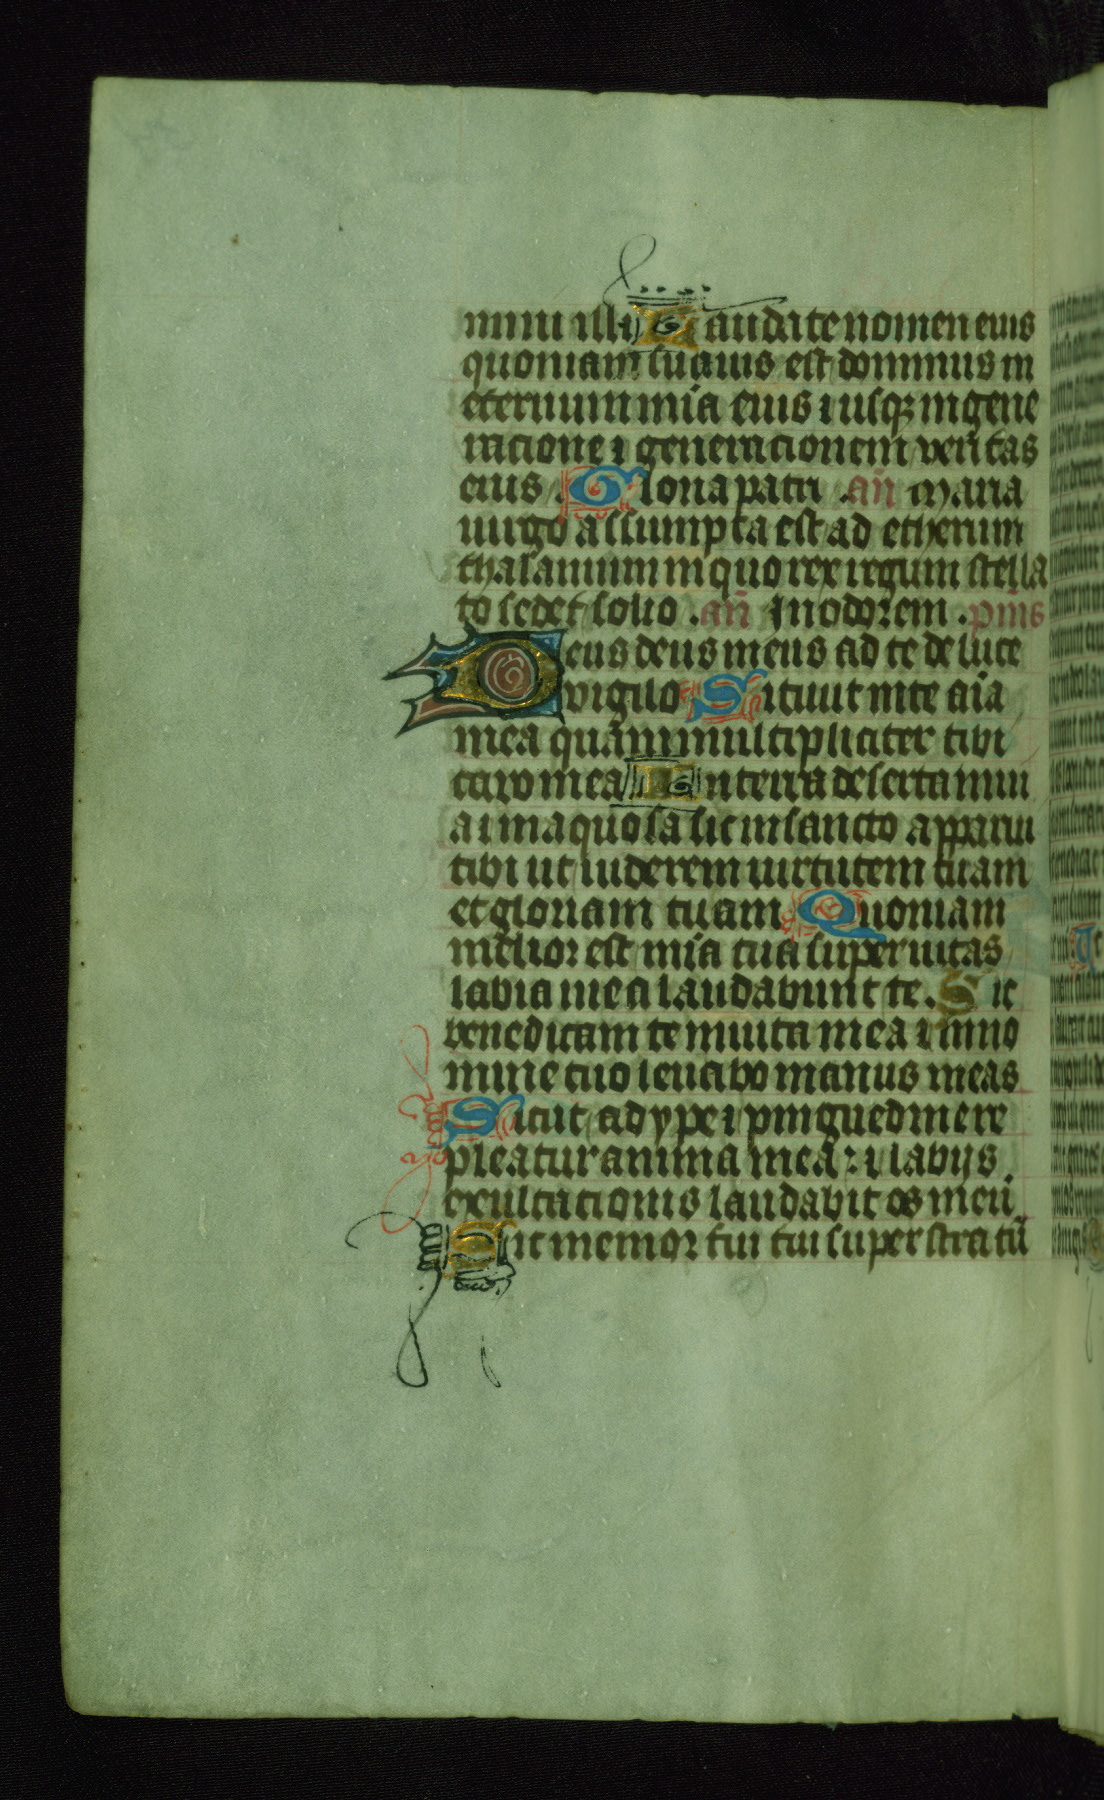 mini illi Laudate nomen eius
quoniam suauis est dominus in
eternum mia eius ⁊ usqꝫ in gene
racione ⁊ generacionem veritas
eius . Gloria patri . an̄ Maria
uirgo assumpta est ad etherium
thalamum in quo rex regum stella
to sedet solio . an̄ In odorem . pm̄s
Deus deus meus ad te de luce
vigilo Sitiuit in te aīa
mea quam multipliciter tibi
caro mea In terra deserta inui
a ⁊ inaquosa sic in sancto apparui
tibi ut uiderem uirtutem tuam
et gloriam tuam Quoniam
melior est mīa tua super uitas
labia mea laudabunt te . Sic
benedicam te in uita mea ⁊ in no
mine tuo leuabo manus meas
Sicut adype ⁊ pinguedine re
pleatur anima mea : ⁊ labijs
exultacionis laudabit os meū
Sic memor fui tui super stratū